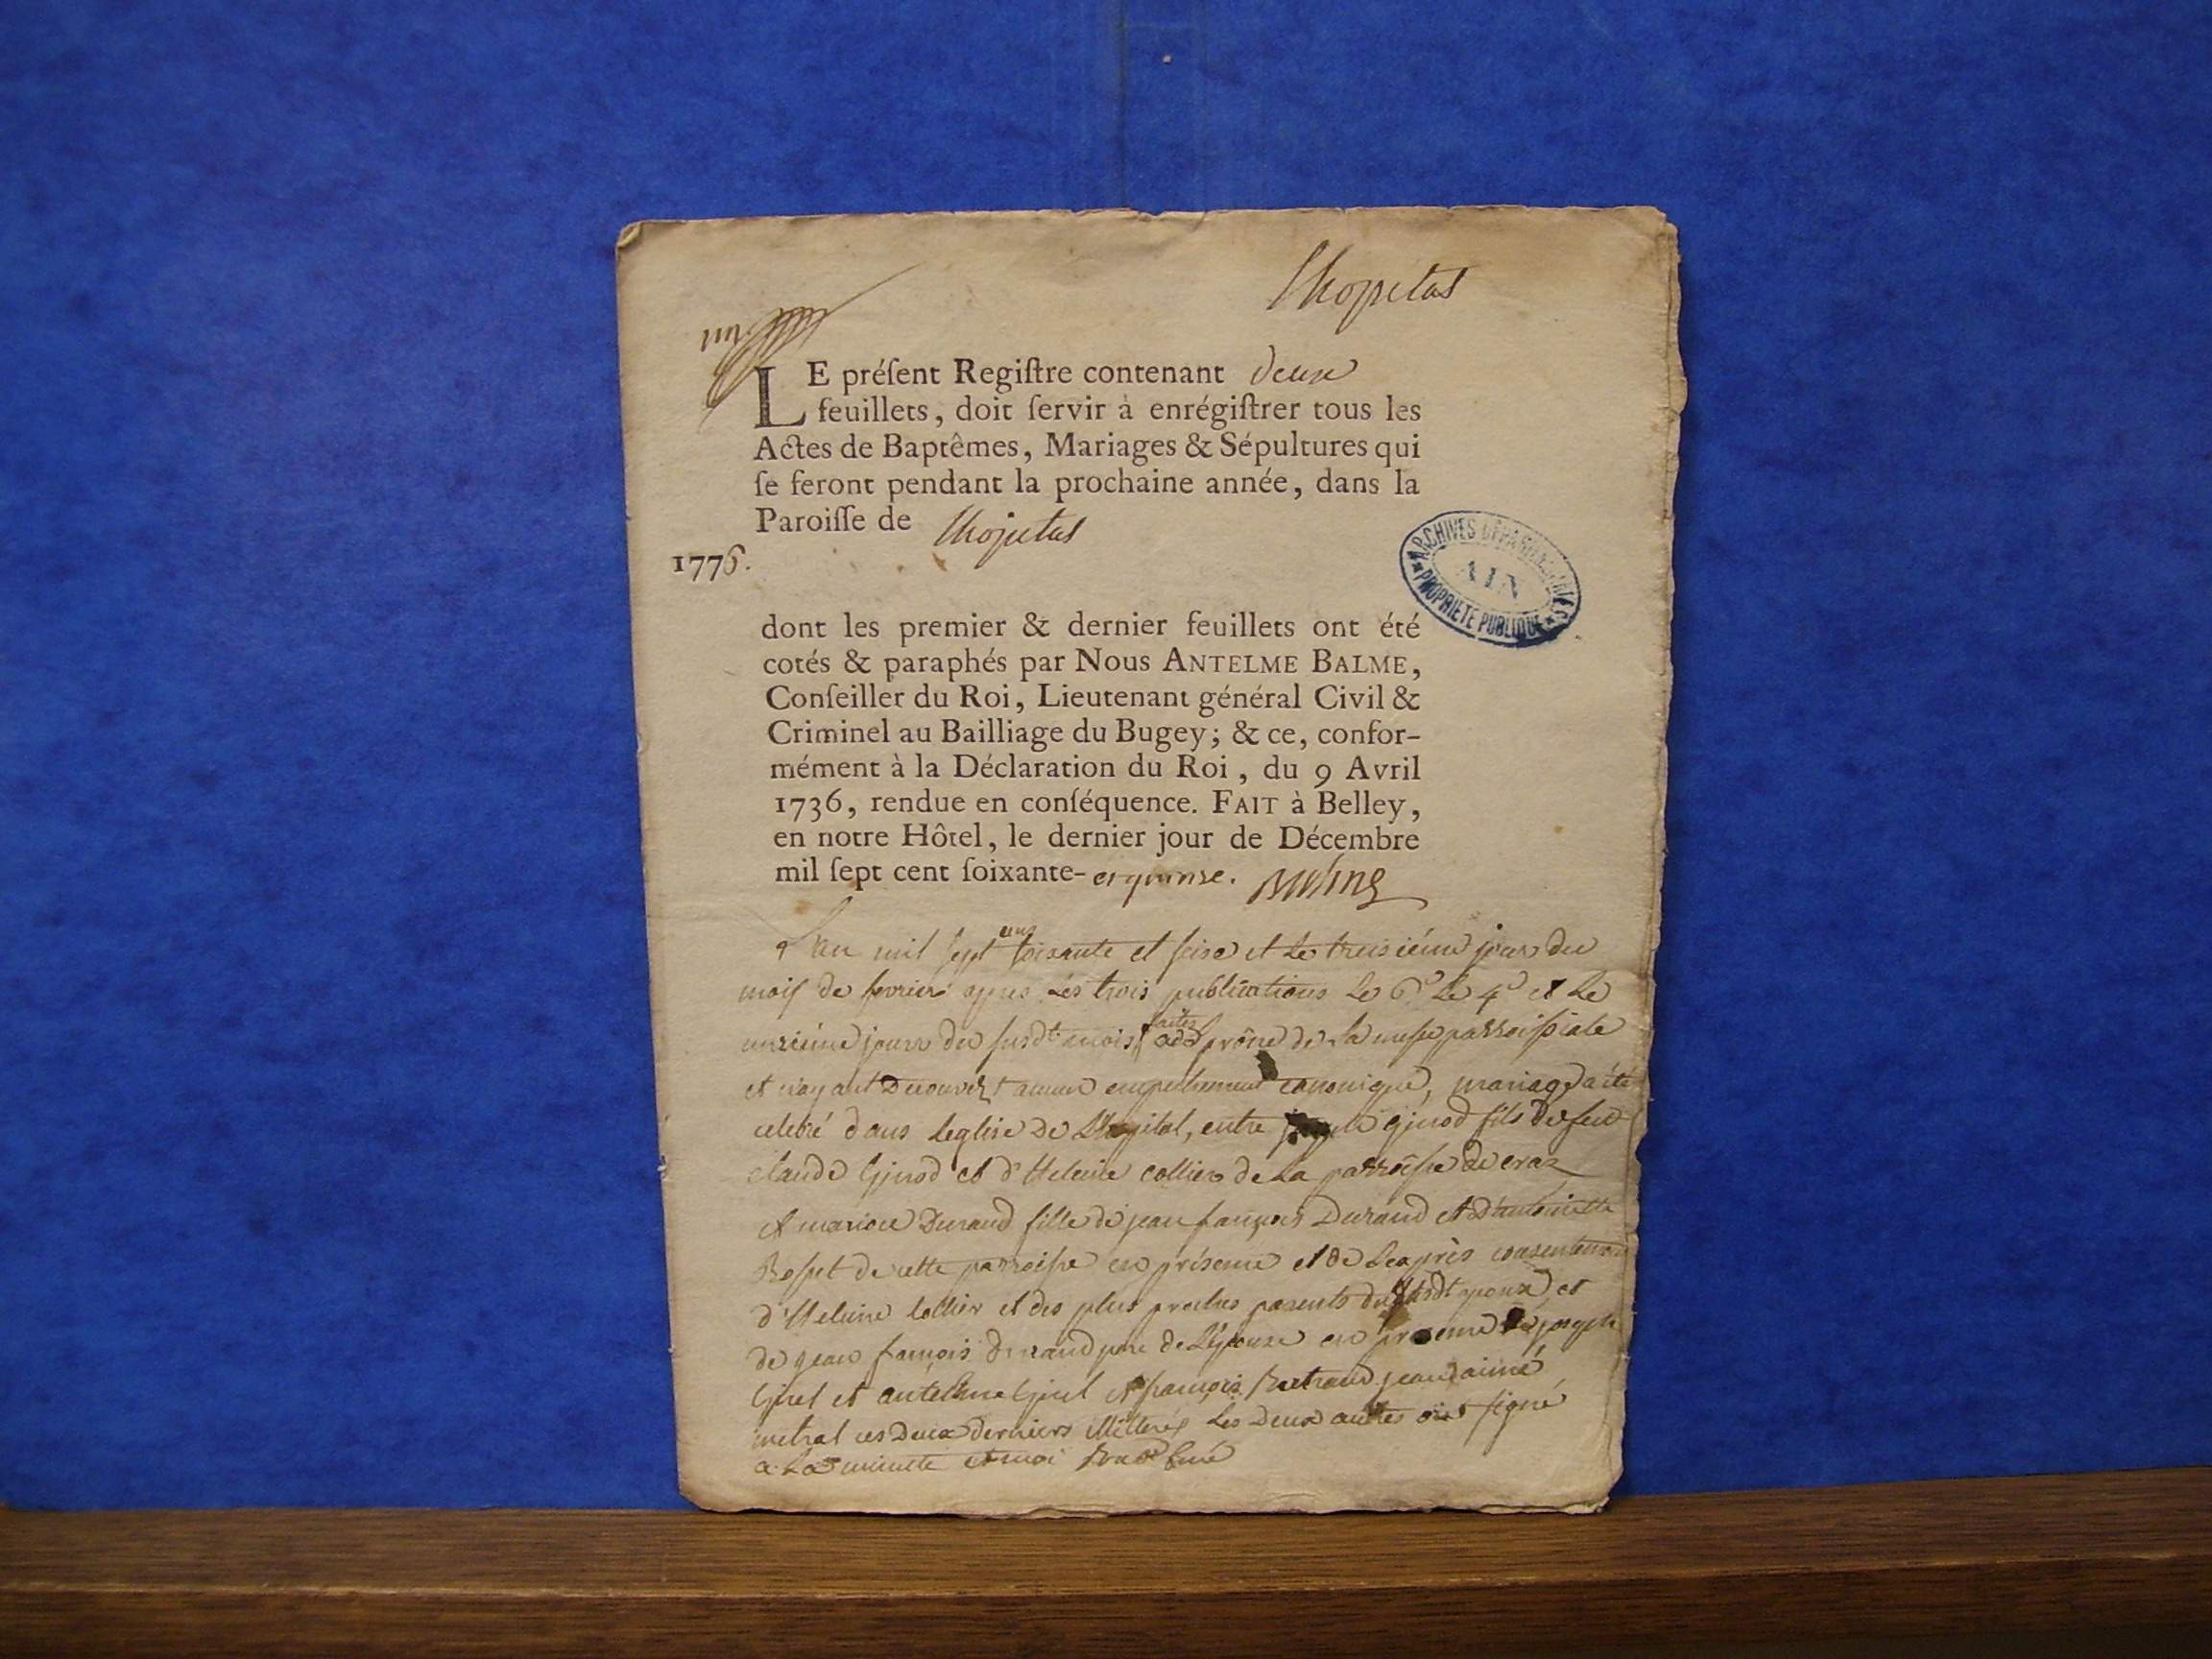 Lhopital
un
LE préſent Regiſtre contenant deux
feuillets, doit ſervir à enrégiſtrer tous les
Actes de Baptêmes, Mariages & Sépultures qui
ſe feront pendant la prochaine année, dans la
Paroiſſe de Lhopital
1776.
ARCHIVES DÉPARTEMENTALES
AIN
PROPRIÉTÉ PUBLIQUE
dont les premier & dernier feuillets ont été
cotés & paraphés par Nous ANTELME BALME,
Conſeiller du Roi, Lieutenant général Civil &
Criminel au Bailliage du Bugey; & ce, confor-
mément à la Déclaration du Roi, du 9 Avril
1736, rendue en conſéquence. FAIT à Belley,
en notre Hôtel, le dernier jour de Décembre
mil ſept cent ſoixante- et quinze.
L'an mil sept soixante et seize et le troisiéme jour du
mois de fevrier apres les trois publications le 6e le 4e et le
onziéme jour du susdt mois faites prône de la messe parroissiale
et n'ayant decouvert aucun empechement canonique, mariage a été
celebré dans leglise de Lhopital, entre fils de feu
claude et d'Heleine collier de la parroisse de craz
et marie Durand fille de jean françois Durand et d'antoinette
de cette parroisse en présence et de consentement
d'Heleine collier et des plus proches parents du susdt epoux, et
de jean françois durand pere de l'épouse en presence de joseph
et antelme et françois jean aimé
metral ces deux derniers les deux autres ont signé
a la minute et moi curé